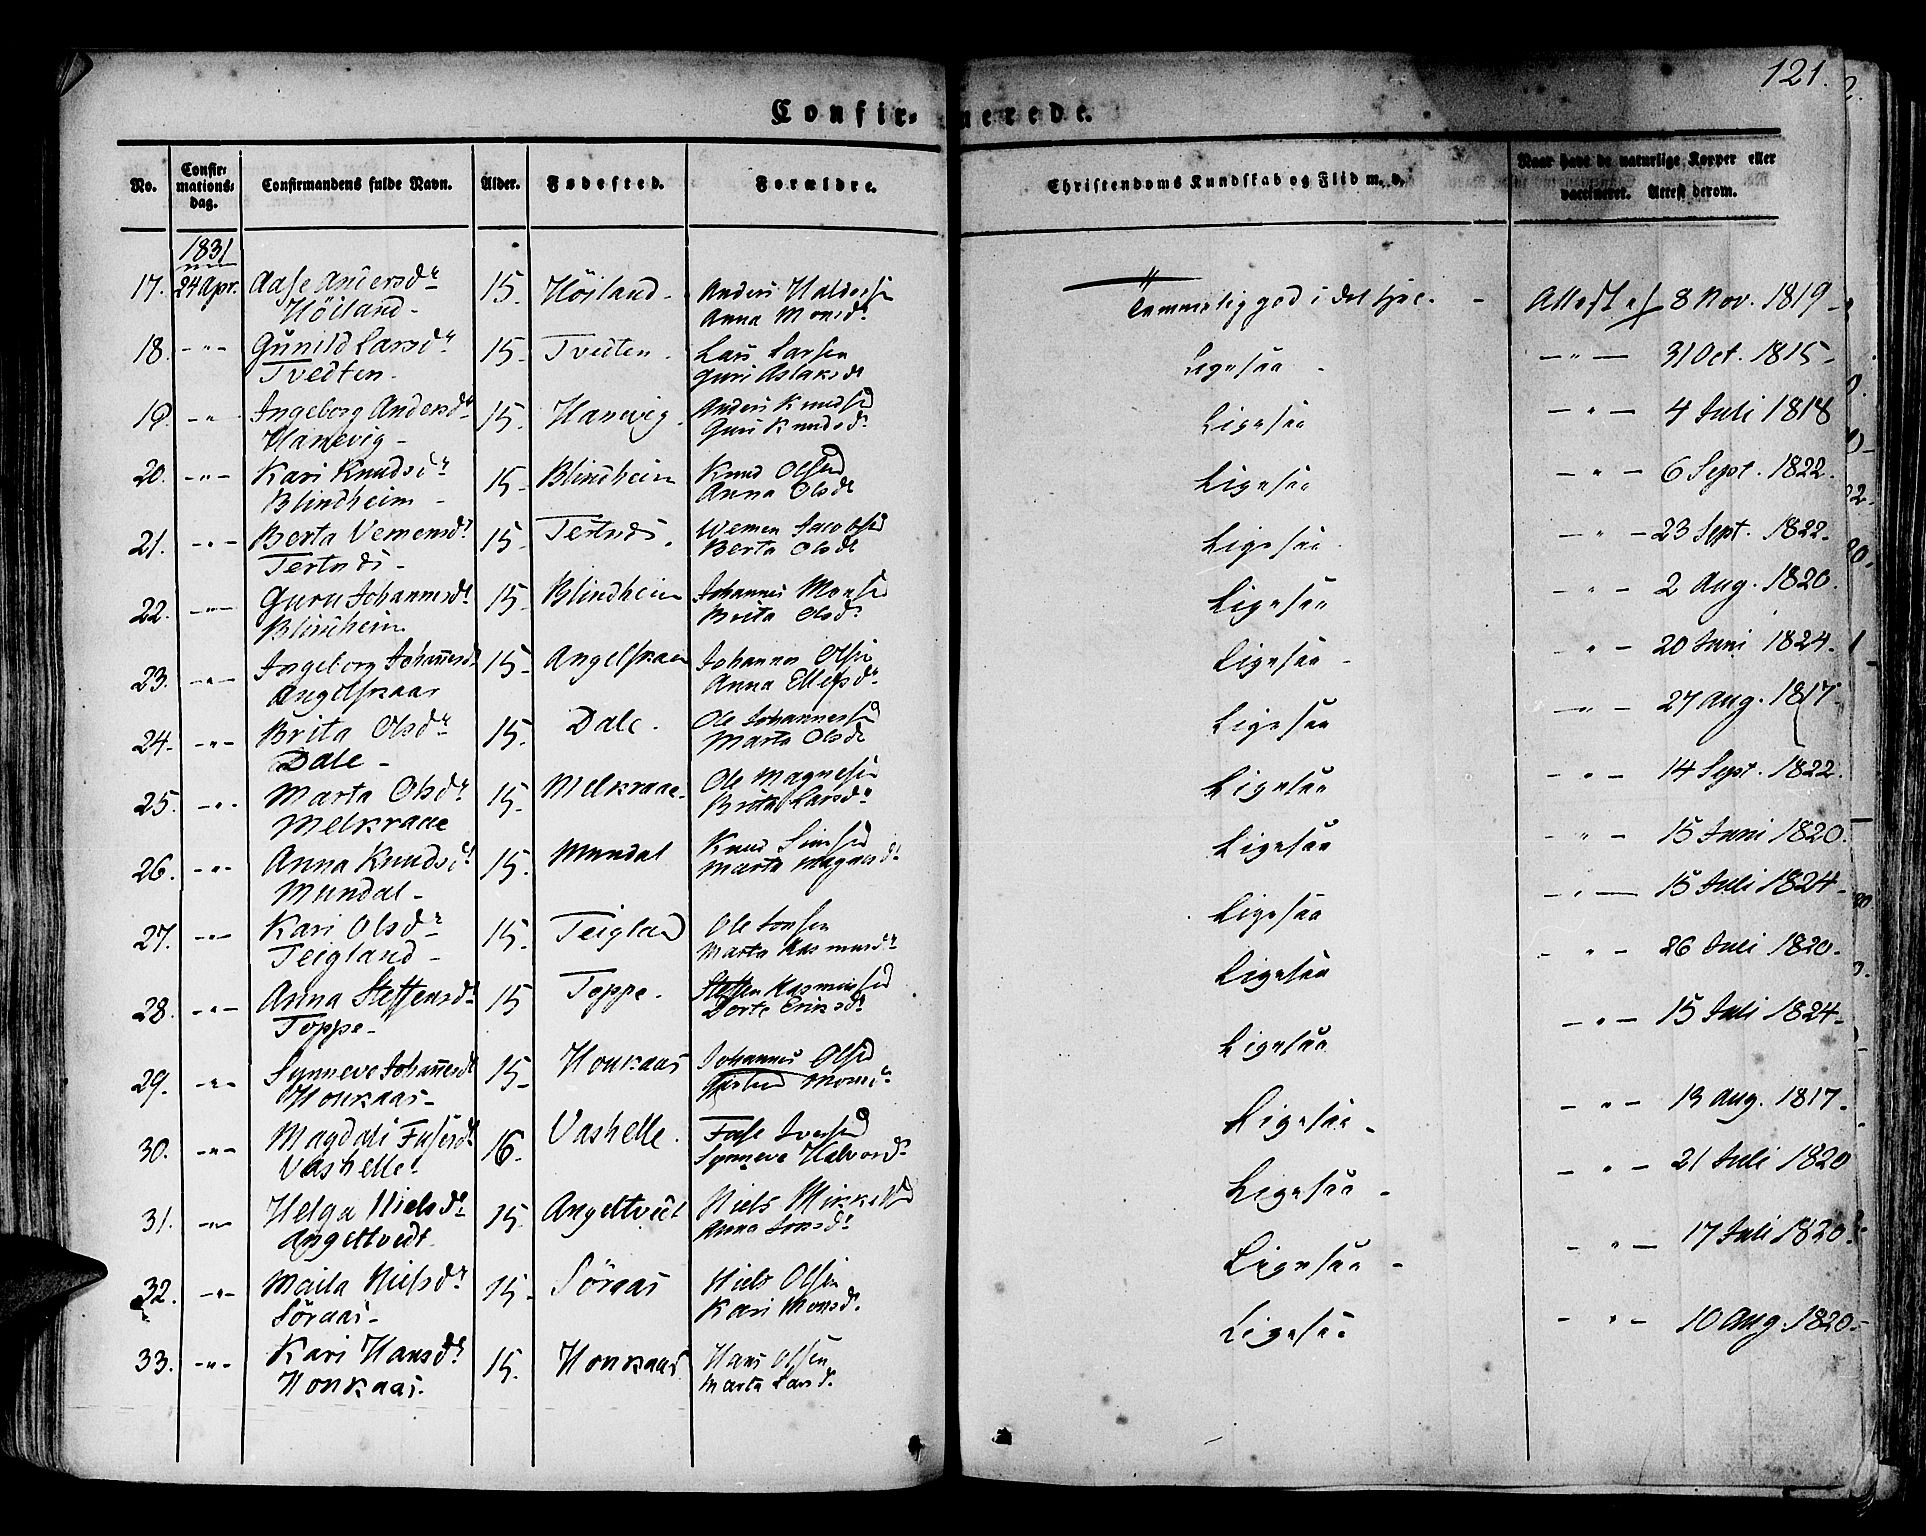 121.
Confirmerede.
No.
Confirmations-dag.
Confirmandens fulde Navn.
Alder.
Fødested.
Forældre.
Christendoms Kundskab og Flid m. v.
Naar havt de naturlige Kopper eller
vaccineret. Attest derom.
1831
17. 24 Apr. Aase Andersdr 15. Höiland - Anders Haldersen Temmelig god i det Hele. - Attest af 8 Nov. 1819 -
Höiland - Anna Monsdr
18. -"- Gunild Larsdr 15- Tvedten. Lars Larsen Ligesaa - -"- 31 Oct. 1815 -
Tvedten. Guri Aslaksdr
19. -"- Ingeborg Andersdr 15. Hanevig. Anders Knudsen Ligesaa -"- 4 Juli 1818
Hanevig - Guri Knudsdr
20. -"- Kari Knudsdr 15- Blindheim Knud Olsen Ligesaa -"- 6 Sept. 1822.
Blindheim - Anna Olsdr
21. -"- Berta Vemensdr 15- Tertnæs. Wemen Jacobsen Ligesaa. -"- 23 Sept. 1822.
Tertnæs - Berta Olsdr
22. -"- Guru Johannesdr 15. Blindheim Johannes Monsen Ligesaa -"- 2 Aug. 1820.
Blindheim Brita Olsdr
23. -"- Ingeborg Johannesdr 15- Angelskaar Johannes Olsen Ligesaa - -"- 20 Juni 1824.
Angelskaar Anna Ellefsdr
24. -"- Brita Olsdr 15. Dale. Ole Johannessen Ligesaa -"- 27 Aug. 1817.
Dale - Marta Olsdr
25. -"- Marta Olsdr 15. Melkraae. Ole Magnesen Ligesaa -"- 14 Sept. 1822.
Melkraae Brita Larsdr
26. -"- Anna Knudsdr 15. Mundal Knud Simsen Ligesaa -"- 15 Juni 1820.
Mundal - Marta Magnesdr
27. -"- Kari Olsdr 15. Teigland Ole Jonsen Ligesaa -"- 15 Juli 1824 -
Teigland - Marta Rasmusdr
28. -"- Anna Steffensdr 15 Toppe. Steffen Rasmusen Ligesaa -"- 26 Juli 1820.
Toppe - Dorte Eriksdr
29. -"- Synneve Johannesdr 15- Honkaas Johannes Olsen Ligesaa -"- 15 Juli 1824 -
Honkaas - Monsdr
30. -"- Magdali Fasesdr 16. Vashelle. Fase Iversen Ligesaa - -"- 13 Aug. 1817.
Vashelle. Synneve Halvorsdr
31. -"- Helga Nielsdr 15. Angeltvedt Niels Mikkelsen Ligesaa - -"- 21 Juli 1820
Angeltvedt. Anna Jonsdr
32. -"- Marta Nielsdr 15. Söraas Niels Olsen Ligesaa - -"- 17 Juli 1820.
Söraas - Kari Monsdr
33. -"- Kari Hansdr 15. Honkaas Hans Olsen Ligesaa -"- 10 Aug. 1820 -
Honkaas. Marta Larsdr